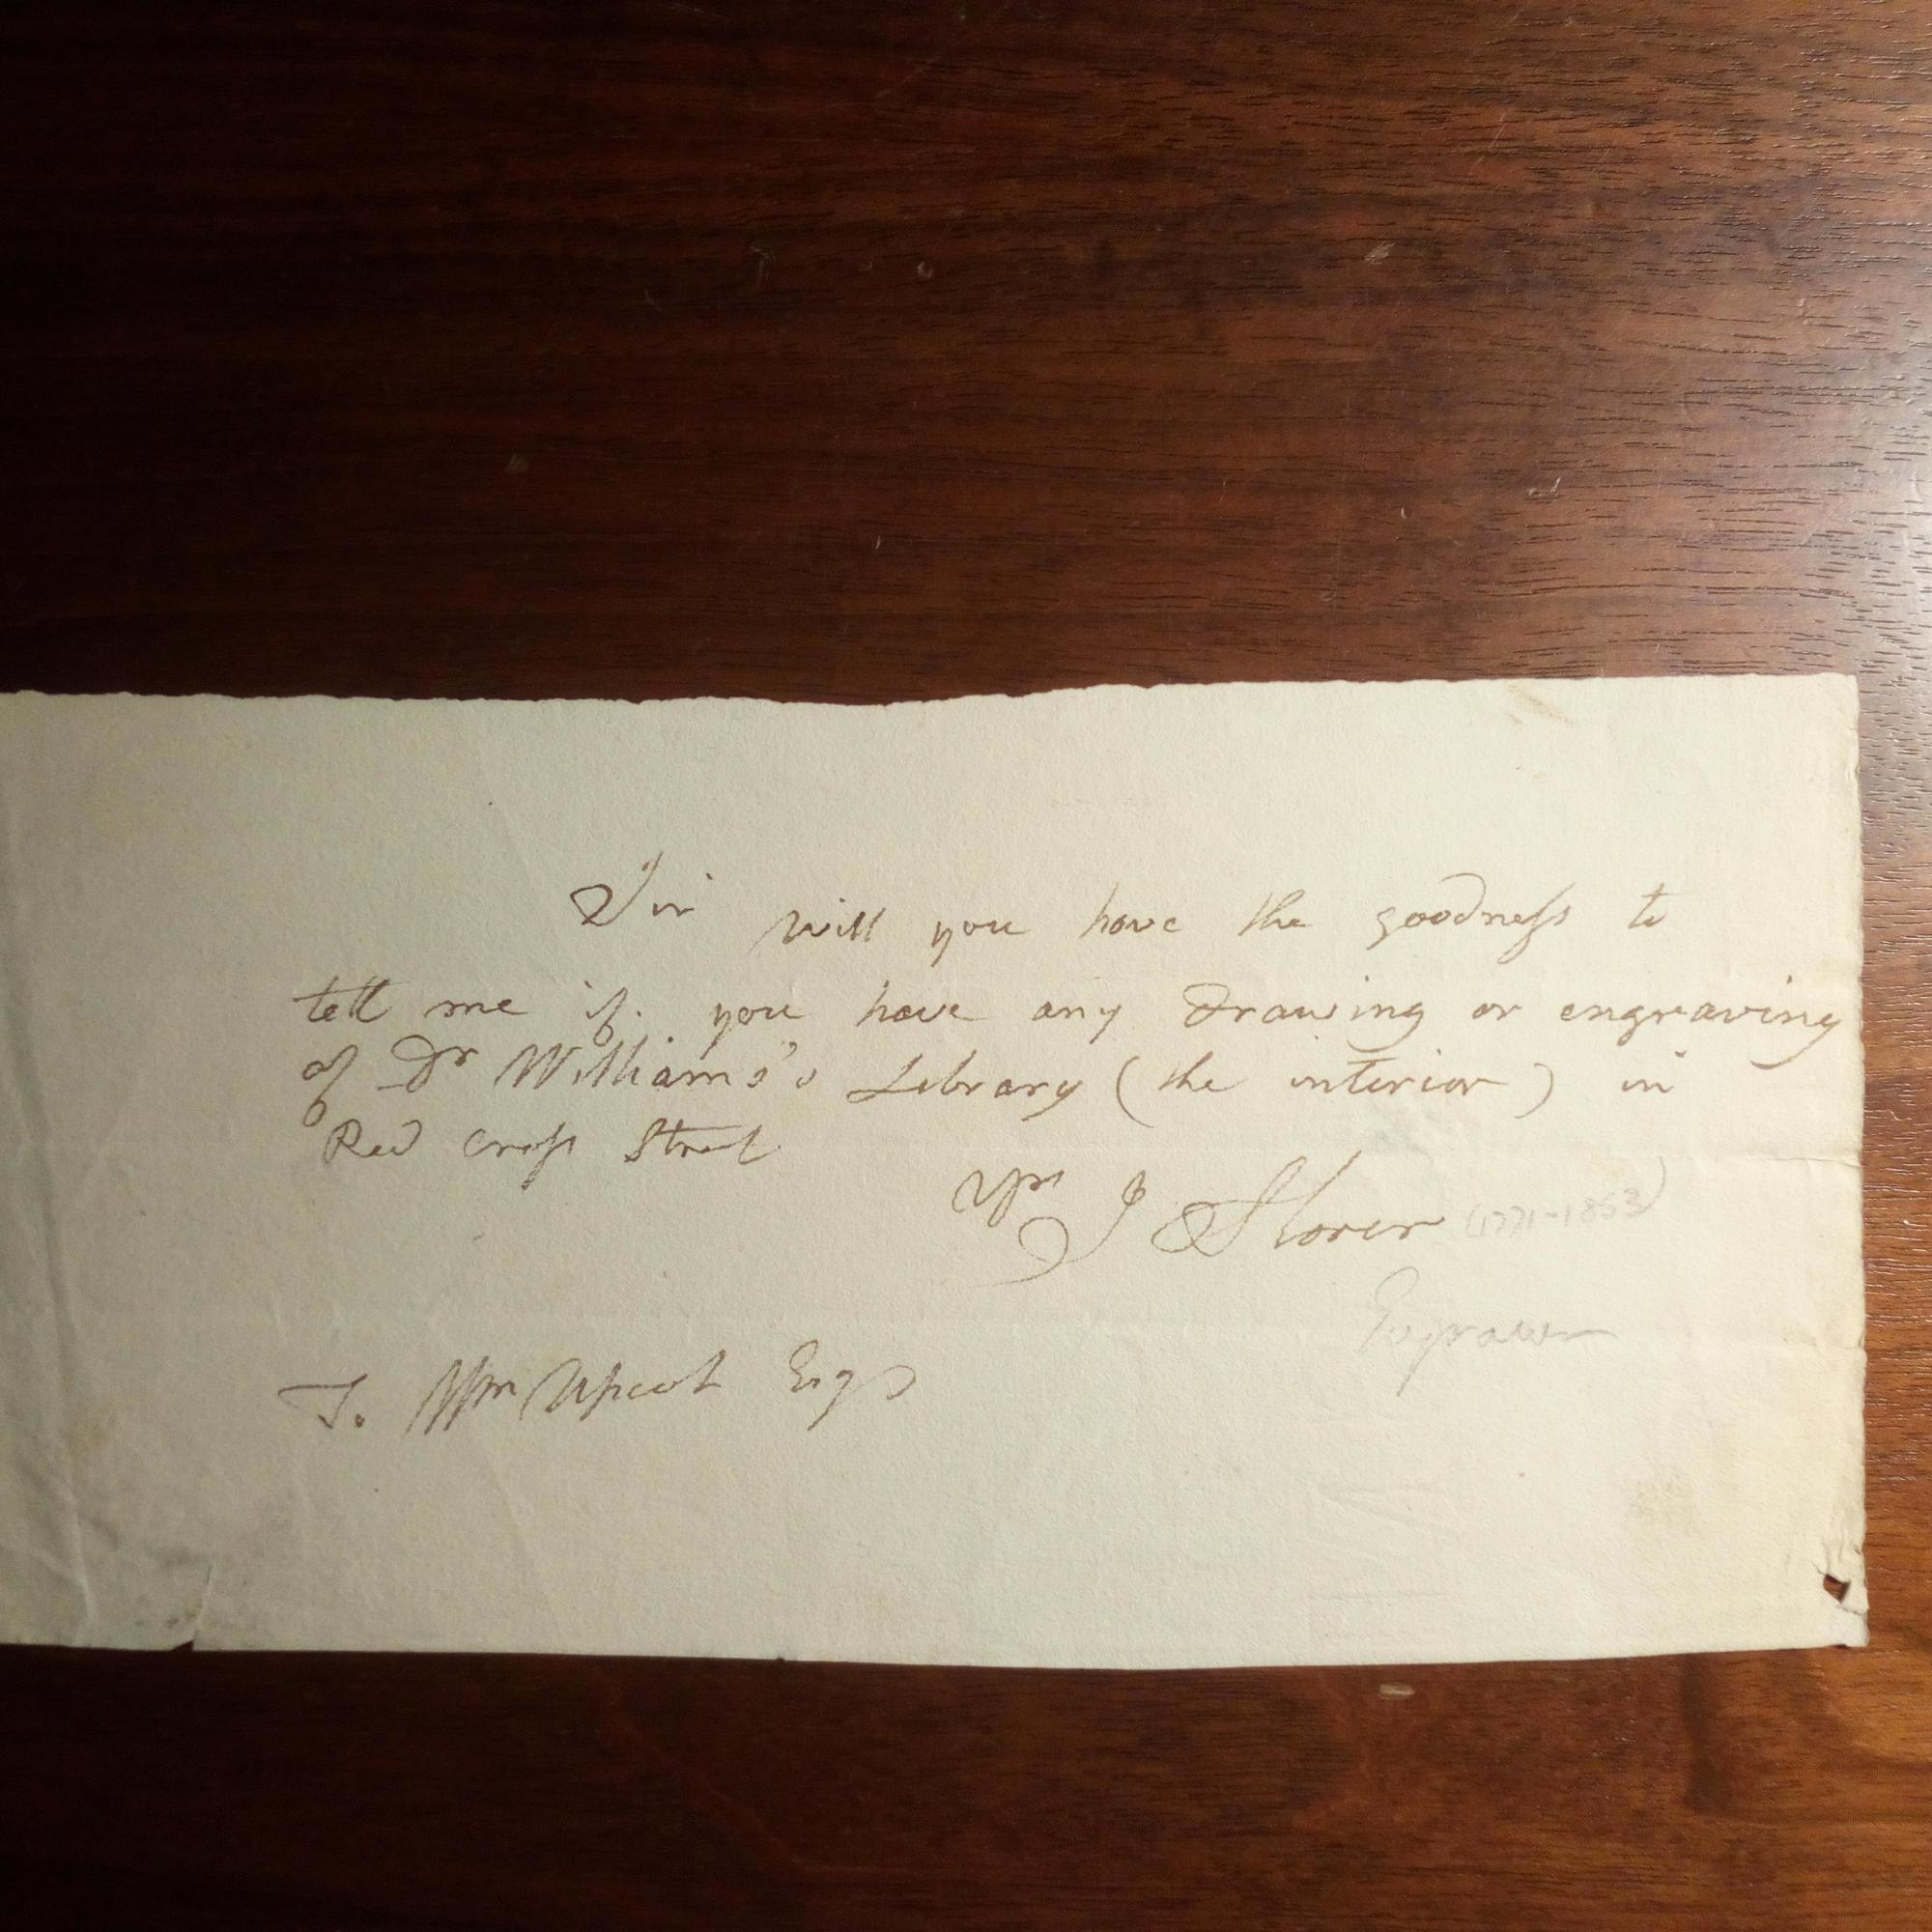 Sir will you have the goodness to
tell me if you have any drawing or engraving
of Dr Williams's Library (the interior) in
Red Cross Street
Yrs J Storer (1771-1853)
Engraver
To Wm Upcot Esqr